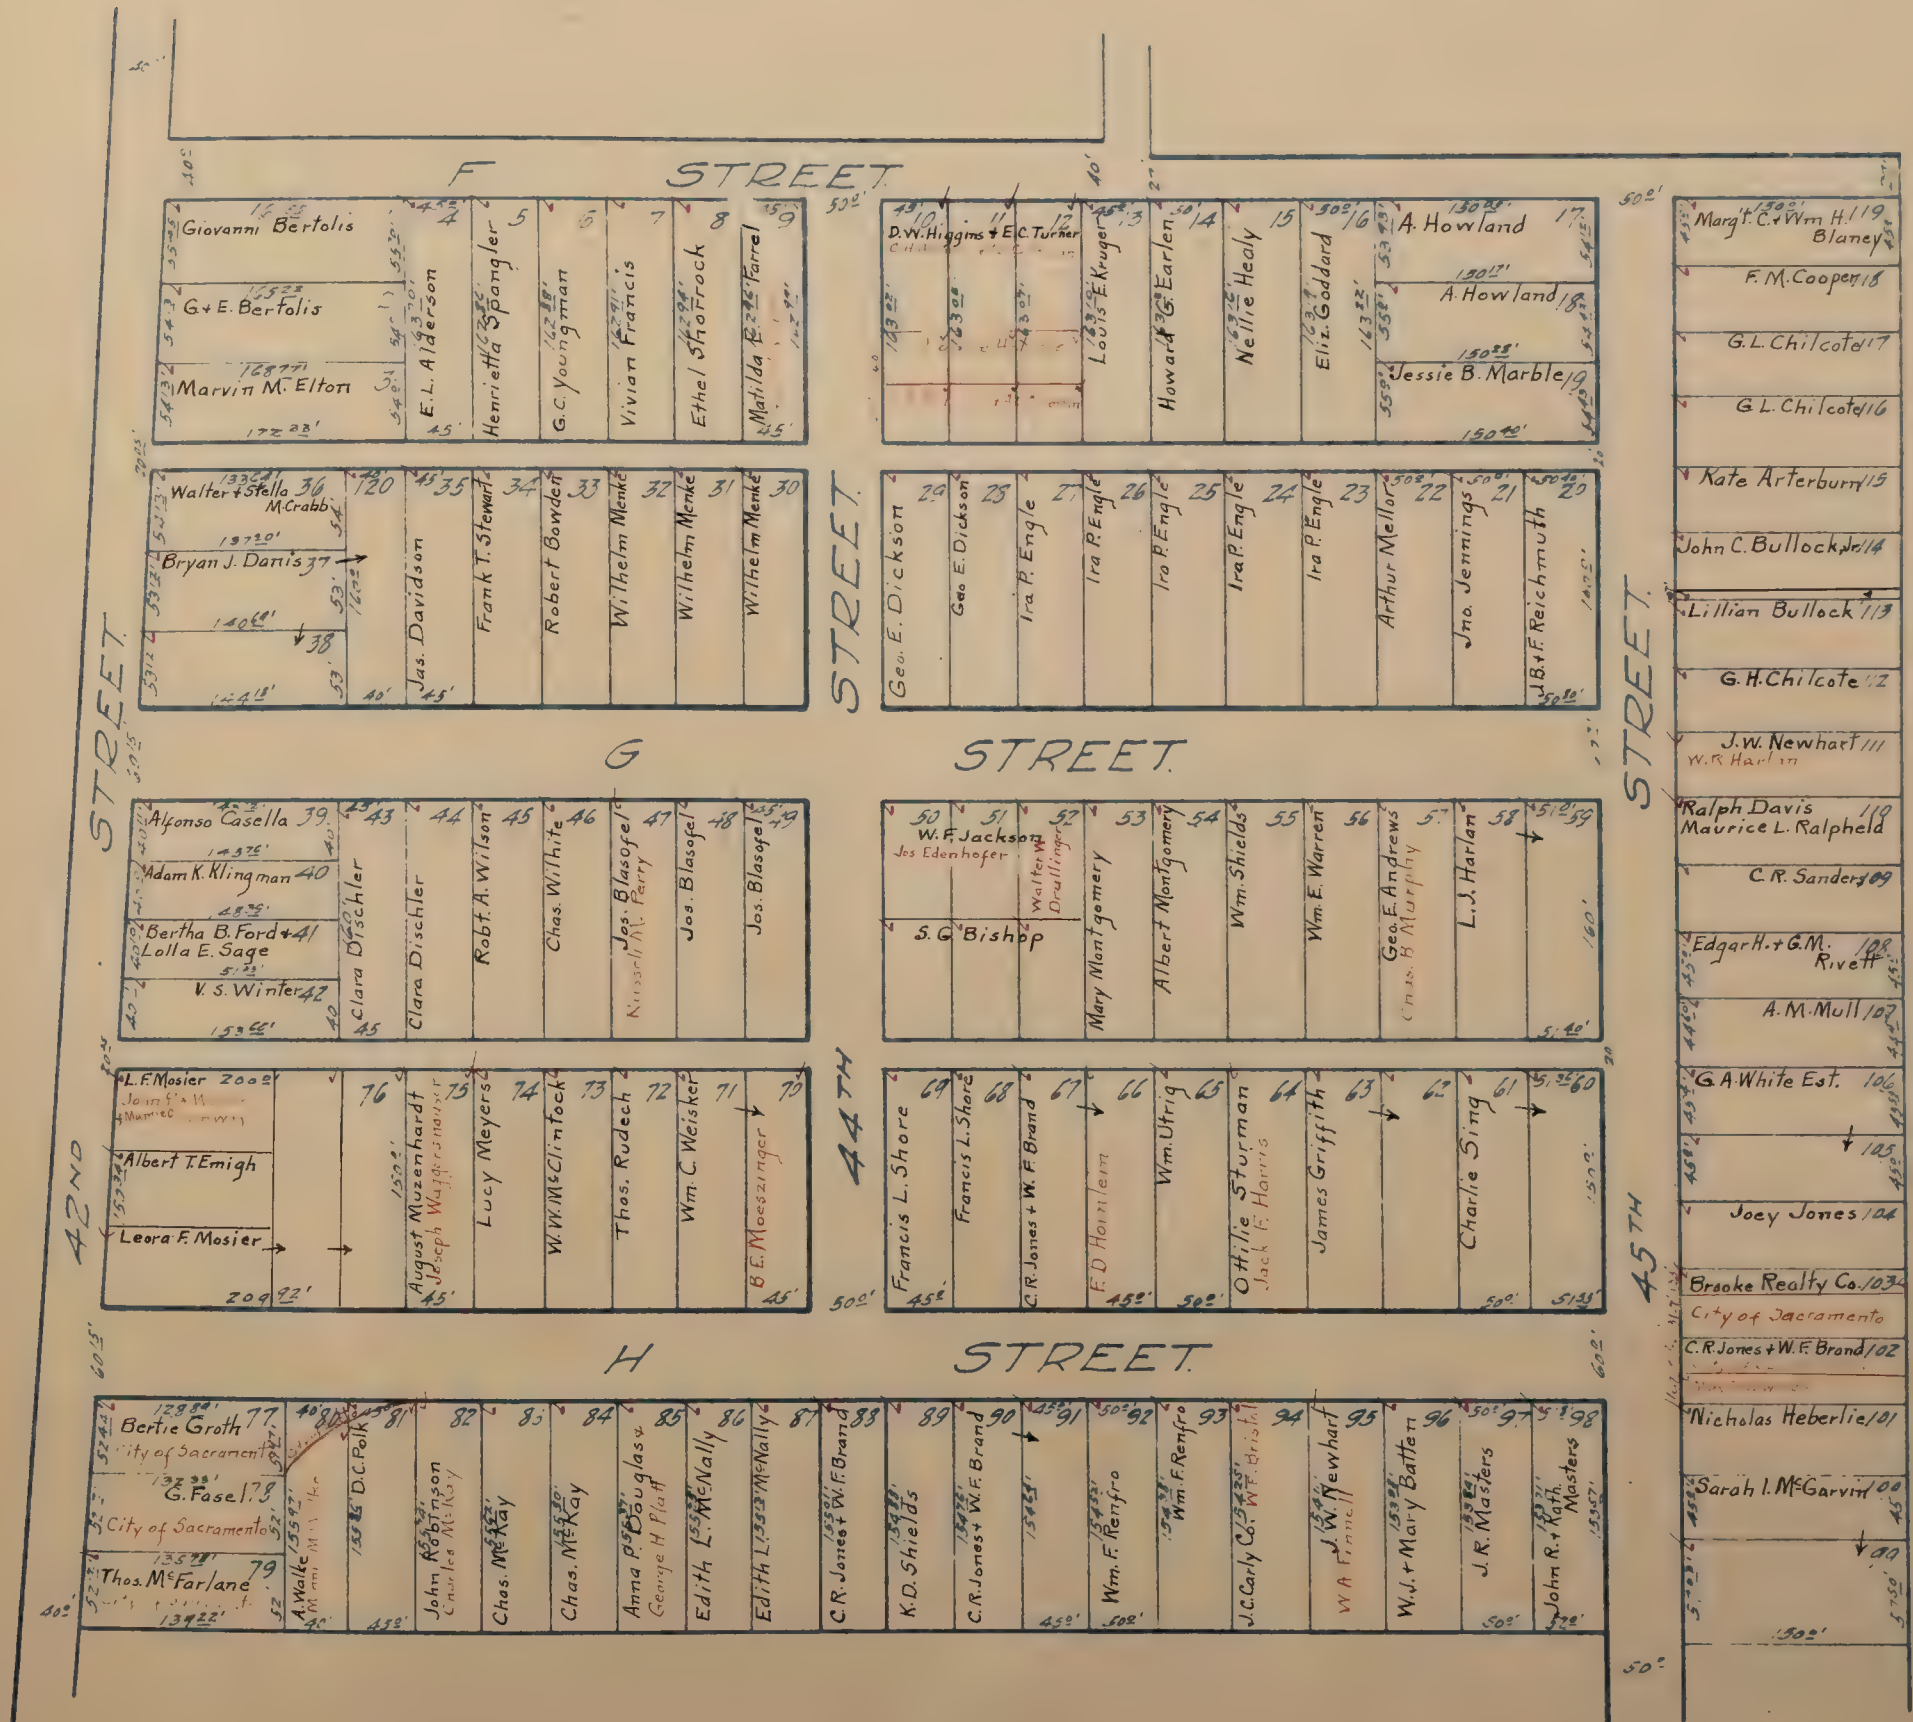 F STREET.
Giovanni Bertolis
G + E. Bertolis
Marvin M. Elton
4 E. L. Alderson
5 Henrietta Spangler
6 G. C. Youngman
7 Vivian Francis
8 Ethel Shorrock
9 Matilda B. Farrel
10 11 12
D. W. Higgins + E. C. Turner
13 Louis E. Kruger
14 Howard G. Earlen
15 Nellie Healy
16 Eliz. Goddard
A. Howland 17
150 17'
A. Howland 18
150 28'
Jessie B. Marble 19
150 40'
Walter + Stella 36
M. Crabb
137 20'
Bryan J. Danis 37
38
120
35 Jas. Davidson
34 Frank T. Stewart
33 Robert Bowden
32 Wilhelm Menke
31 Wilhelm Menke
30 Wilhelm Menke
29 Geo. E. Dickson
28 Geo E. Dickson
27 Ira P. Engle
26 Ira P. Engle
25 Ira P. Engle
24 Ira P. Engle
23 Ira P. Engle
22 Arthur Mellor
21 Jno. Jennings
20 J. B. + F. Reichmuth
G STREET.
Alfonso Casella 39
Adam K. Klingman 40
Bertha B. Ford + 41
Lolla E. Sage
V. S. Winter 42
43 Clara Dischler
44 Clara Dischler
45 Robt. A. Wilson
46 Chas. Wilhite
47 Jos. Blasofel
Perry
48 Jos. Blasofel
49 Jos. Blasofel
50 51 52
W. F. Jackson
Jos Edenhofer
Walter W
Drullinger
S. G Bishop
53 Mary Montgomery
54 Albert Montgomery
55 Wm. Shields
56 Wm. E. Warren
57 Geo. E. Andrews
Chas. B Murphy
58 L. J. Harlan
59
160'
L. F. Mosier 200 0'
Albert T. Emigh
Leora F. Mosier
209 92'
76
75 August Muzenhardt
Joseph
74 Lucy Meyers
73 W. W. McClintock
72 Thos. Rudech
71 Wm. C. Weisker
70 B E. Moeszinger
69 Francis L. Shore
68 Francis L. Shore
67 C. R. Jones + W. F. Brand
66 F. D Hornlein
65 Wm. Utrig
64 Ottilie Sturman
Jack F. Harris
63 James Griffith
62
61 Charlie Sing
60
H STREET.
Bertie Groth 77
City of Sacramento
G. Fasel 78
City of Sacramento
Thos. McFarlane 79
139 22'
80 A. Walke
81 D. C. Polk
82 John Robinson
Charles McKay
83 Chas. McKay
84 Chas. McKay
85 Anna P. Douglas +
George H Platt
86 Edith L. McNally
87 Edith L. McNally
88 C. R. Jones + W. F. Brand
89 K. D. Shields
90 C. R. Jones + W. F. Brand
91
92 Wm. F. Renfro
93 Wm. F. Renfro
94 J. C. Carly Co.
W. F. Bristol
95 J. W. Newhart
W A Finnell
96 W. J. + Mary Batten
97 J. R. Masters
98 John R. + Kath. Masters
42ND STREET.
44TH STREET.
45TH STREET.
Marg't. C. + Wm H. 119
Blaney
F. M. Cooper 118
G. L. Chilcote 117
G L. Chilcote 116
Kate Arterburn 115
John C. Bullock Jr. 114
Lillian Bullock 113
G. H. Chilcote 112
J. W. Newhart 111
W. R Harlan
Ralph Davis 110
Maurice L. Ralpheld
C. R. Sanders 109
Edgar H. + G. M. 108
Rivett
A. M. Mull 107
G. A. White Est. 106
105
Joey Jones 104
Brooke Realty Co. 103
City of Sacramento
C. R. Jones + W. F. Brand 102
Nicholas Heberlie 101
Sarah I. McGarvin 100
99
150 0'